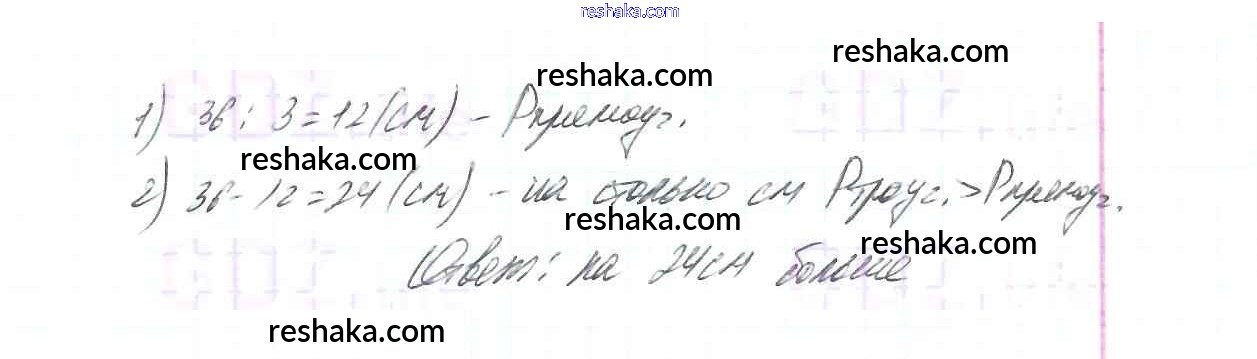 reshaka.com
reshaka.com
reshaka.com
1) 36 : 3 = 12 (см) – Pпрямоуг.
reshaka.com
2) 36 - 12 = 24 (см) – на столько см Pтреуг. > Pпрямоуг.
reshaka.com
reshaka.com
Ответ: на 24 см больше
reshaka.com